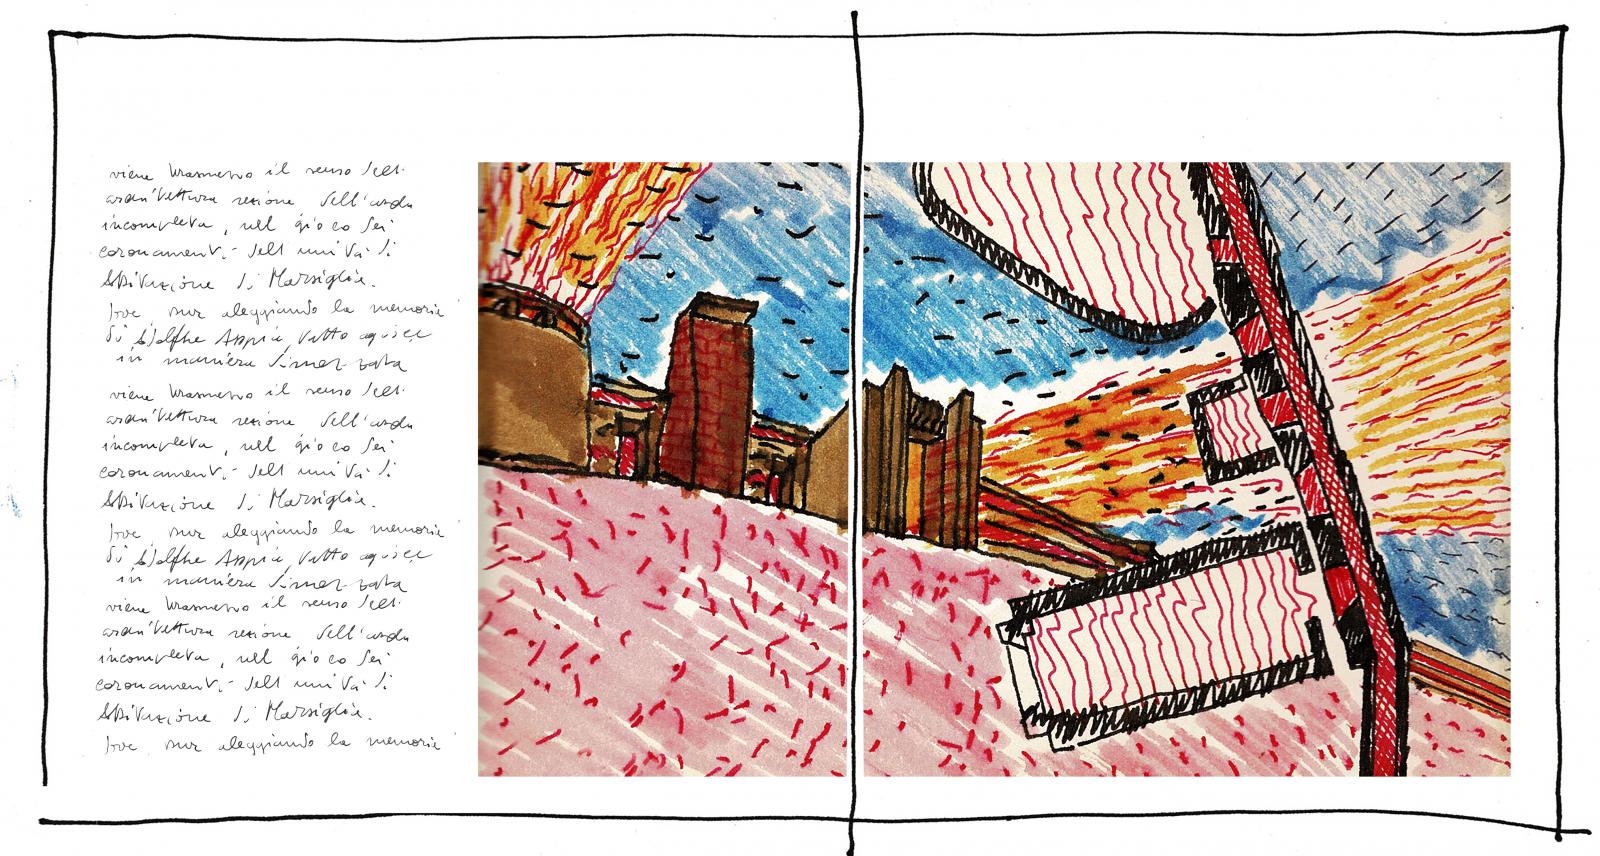 viene trasmesso il senso dell'
architettura sezione dell'onda
incompleta, nel gioco dei
coronamenti dell'unità di
Abitazione di Marsiglia.
Dove, pur aleggiando la memoria
di Adolphe Appia, tutto agisce
in maniera
viene trasmesso il senso dell'
architettura sezione dell'onda
incompleta, nel gioco dei
coronamenti dell'unità di
Abitazione di Marsiglia.
Dove, pur aleggiando la memoria
di Adolphe Appia, tutto agisce
in maniera
viene trasmesso il senso dell'
architettura sezione dell'onda
incompleta, nel gioco dei
coronamenti dell'unità di
Abitazione di Marsiglia.
Dove, pur aleggiando la memoria